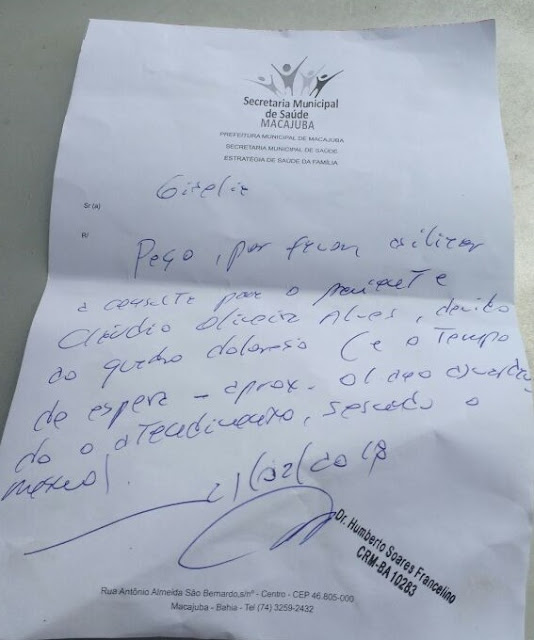 Secretaria Municipal
de Saúde
MACAJUBA
PREFEITURA MUNICIPAL DE MACAJUBA
SECRETARIA MUNICIPAL DE SAÚDE
ESTRATÉGIA DE SAÚDE DA FAMÍLIA
Sr (a)
R/
Peço, por favor, agilizar
a consulta para o paciente
Cláudio Oliveira Alves, devido
ao quadro doloroso (e o tempo
de espera - aprox. 01 ano aguardan-
do o atendimento, segundo o
mesmo).
21/02/2018
Dr. Humberto Soares Francelino
CRM-BA 10283
Rua Antônio Almeida São Bernardo,s/nº - Centro - CEP 46.805-000
Macajuba - Bahia - Tel (74) 3259-2432